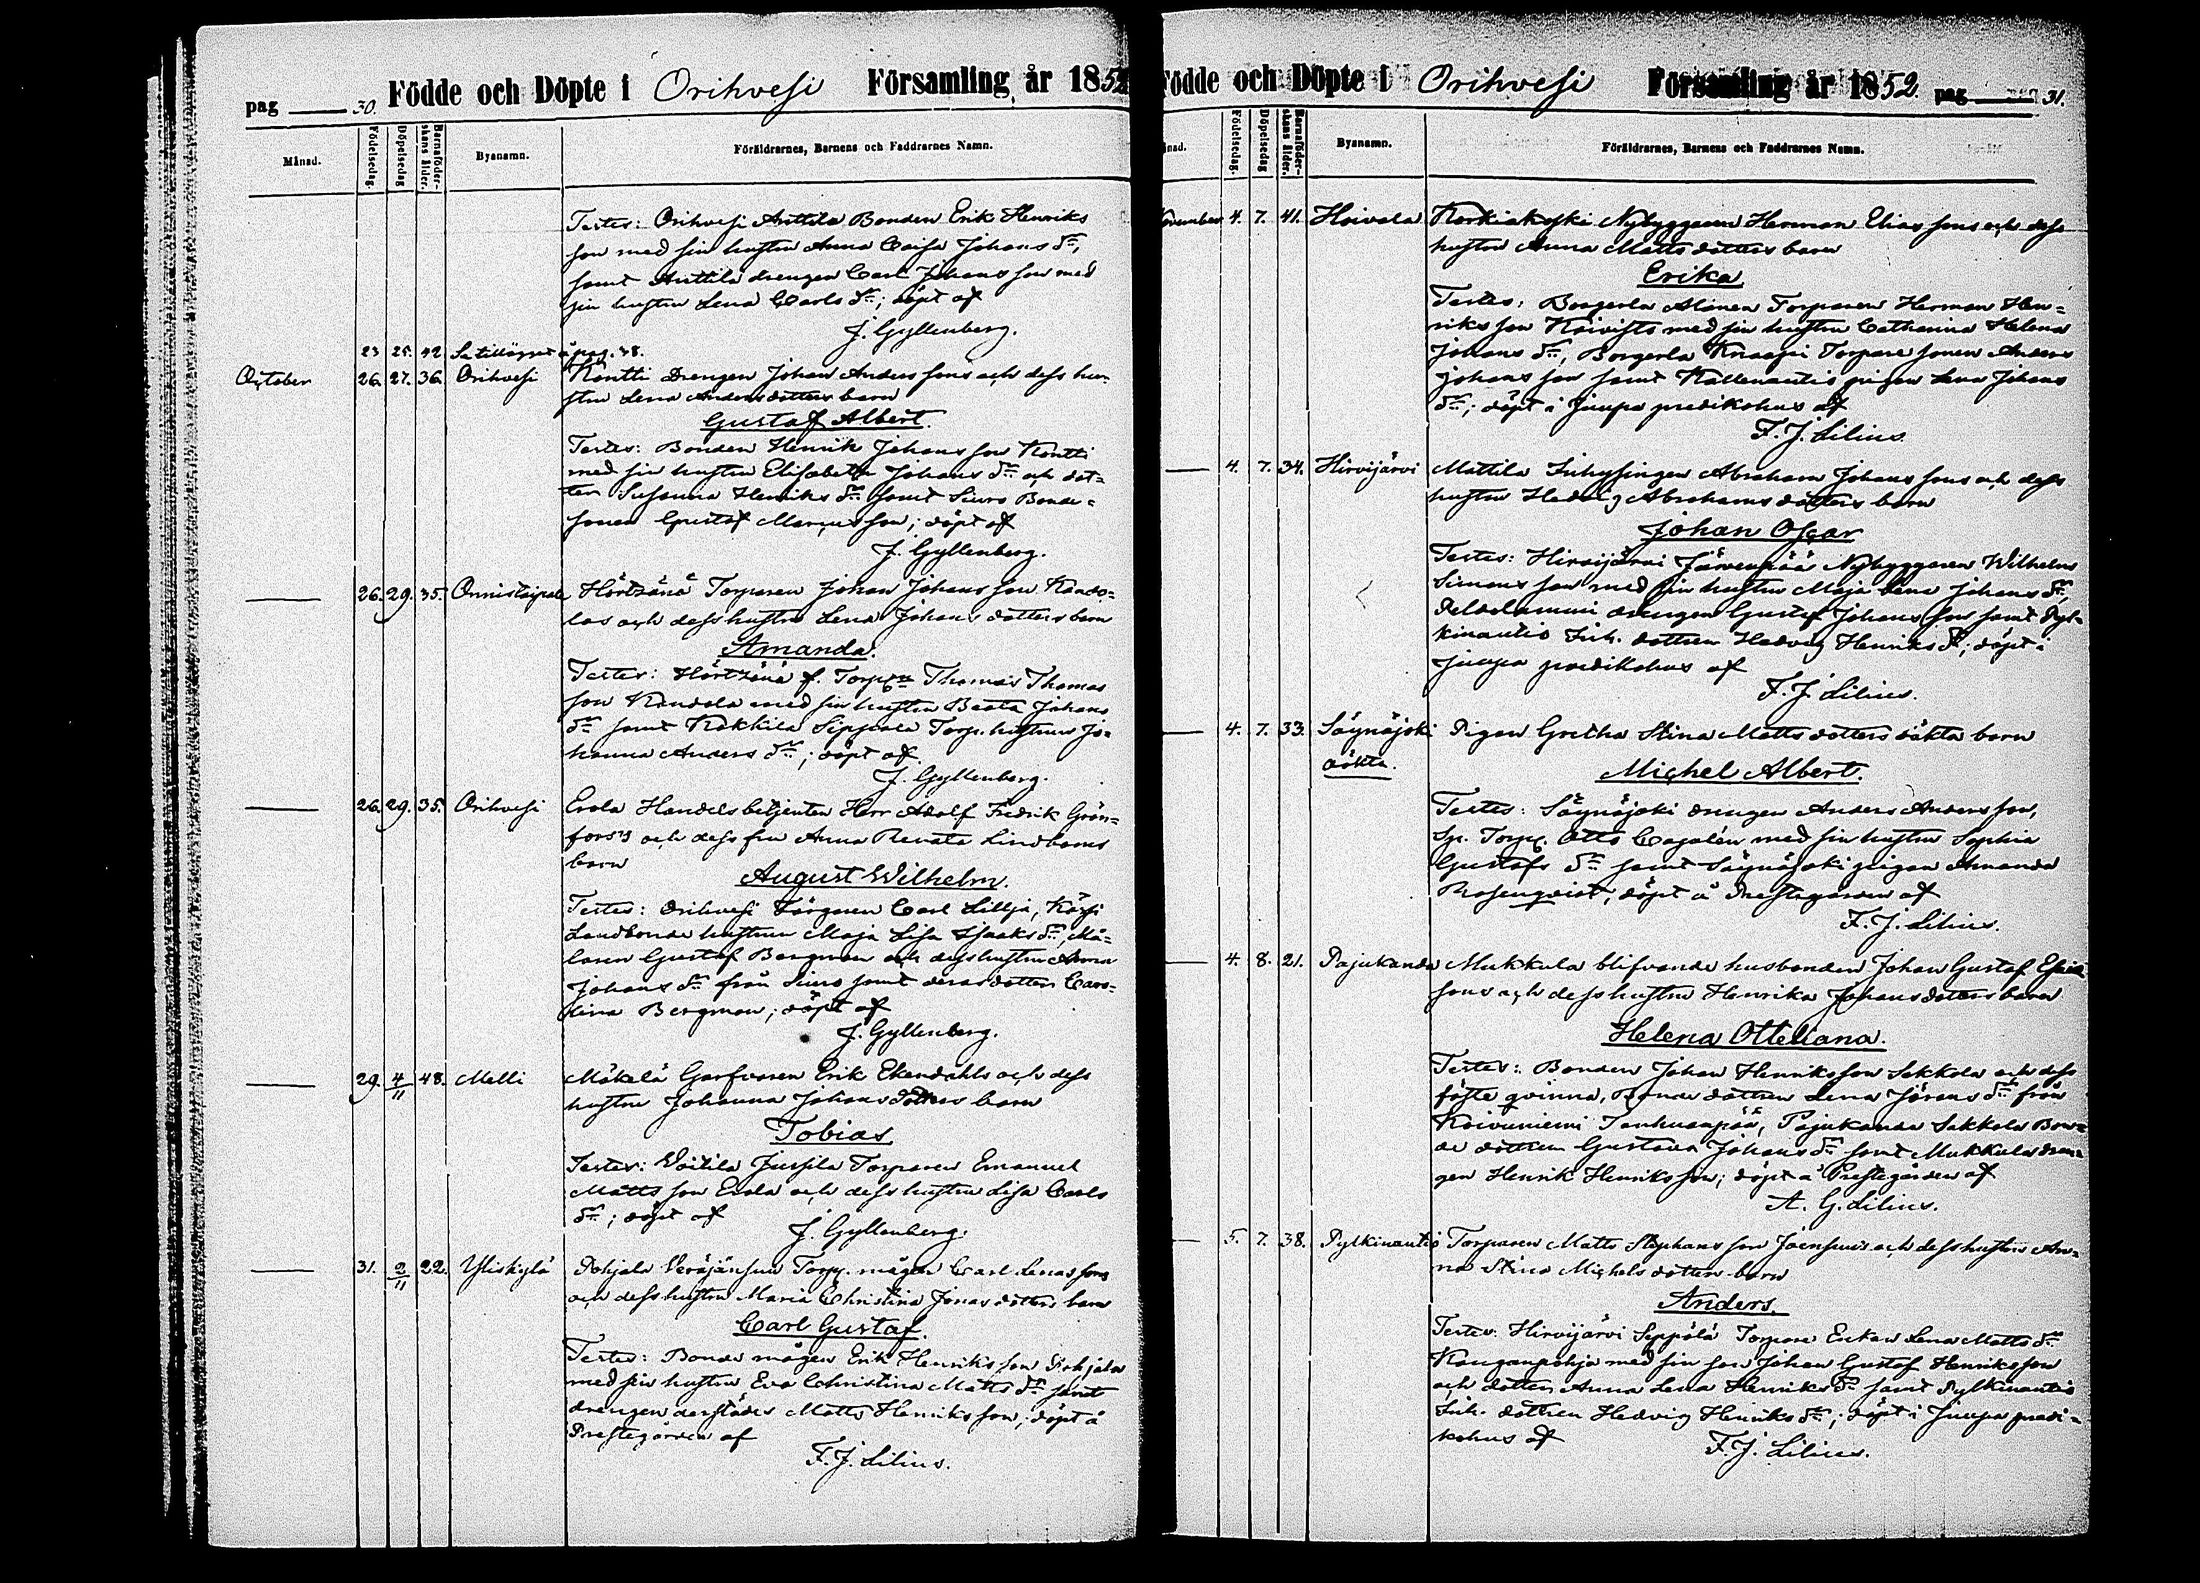 pag 30. Födde och Döpte i Orihvesi Församling år 1852
Månad. Födelsedag. Döpelsedag Barnaföderskans ålder. Bynamn. Föräldrarnes, Barnens och Faddrarnes Namn.
Testes: Orihvesi Anttila Bonden Erik Henriks
son med sin hustru Anna Caisa Johans dr,
samt Anttila drengen Carl Johans son med
sin hustru Lena Carls dr; döpt af
J. Gyllenberg.
23 25. 42 Se tillägget å pag. 38.
October 26. 27. 36. Orihvesi Köntti Drengen Johan Anders sons och dess hu-
stru Lena Anders dotters barn
Gustaf Albert.
Testes: Bonden Henrik Johans son Köntti
med sin hustru Elisabeth Johans dr och dot-
ter Susanna Henriks dr samt Siuro Bonde-
sonen Gustaf Marcus son; döpt af
J. Gyllenberg.
26. 29. 35. Onnistaipale Torparen Johan Johans son Kando-
las och dess hustru Lena Johans dotters barn
Amanda.
Testes: f. Torp. Thomas Thomas
son Kandola med sin hustru Beata Johans
dr samt Kokkila Seppala Torp. hustrun Jo-
hanna Anders dr; döpt af
J. Gyllenberg.
26. 29. 35. Orihvesi Erola Handelsbetjenten Herr Adolf Fredrik Grön-
fors's och dess fru Anna Renata Lindboms
barn
August Wilhelm.
Testes: Orihvesi Färgaren Carl Lillja,
Landbonde hustrun Maja Lisa Isaaks dr, Må-
laren Gustaf Bergman och dess hustru Anna
Johans dr från Siuro samt deras dotter Caro-
lina Bergman; döpt af
J. Gyllenberg.
29. 4/11 48. Melli Mäkelä Garfvaren Erik Ekendahls och dess
hustru Johanna Johans dotters barn
Tobias
Testes: Voitila Jussila Torparen Emanuel
Matts son Erola och dess hustru Lisa Carls
dr; döpt af
J. Gyllenberg.
31. 2/11 22. Yliskylä Pohjala Torp. mågen Carl sons
och dess hustru Maria Christina Jonas dotters barn
Carl Gustaf.
Testes: Bonde mågen Erik Henriks son Pohjala
med sin hustru Eva Christina Matts dr samt
drengen derstädes Matts Henriks son; döpt å
Prestegården af
F. J. Lilius.
Födde och Döpte i Orihvesi Församling år 1852. pag 31.
Månad. Födelsedag. Döpelsedag Barnaföderskans ålder. Bynamn. Föräldrarnes, Barnens och Faddrarnes Namn.
November 4. 7. 41. Hoivala Korkiakoski Nybyggaren Herman Elias sons och dess
hustru Anna Matts dotters barn
Erika
Testes: Borgerla Torparen Herman Hen-
riks son Koivisto med sin hustru Catharina Helena
Johans dr, Borgerla Torpare sonen Anders
Johans son samt pigan Lena Johans
dr; döpt i Juupa predikohus af
F. J. Lilius.
4. 7. 34. Hirvijärvi Mattila Inhysingen Abraham Johans sons och dess
hustru Hedvig Abrahams dotters barn
Johan Oscar
Testes: Hirvijärvi Järvenpää Nybyggaren Wilhelm
Simons son med sin hustru Maja Lena Johans dr,
drengen Gustaf Johans son samt Pyl-
kinautio Inh. dottren Hedvig Henriks dr; döpt i
Juupa predikohus af
F. J. Lilius.
4. 7. 33. Säynäjoki Pigan Gretha Stina Matts dotters oäkta barn
oäkta.
Michel Albert.
Testes: Säynäjoki drengen Anders Anders son,
Sp. Torp. Otto Cajalén med sin hustru Sophia
Gustafs dr samt Säynäjoki pigan Amanda
Rosenqvist; döpt å Prestegården af
F. J. Lilius.
4. 8. 21. Pajukanda Mukkula blifvande husbonden Johan Gustaf
sons och dess hustru Henrika Johans dotters barn
Helena Otteliana.
Testes: Bonden Johan Henriksson Sakkola och dess
fäste qvinna, Bonde dottren Lena Jörans dr från
Koivuniemi Tanhuanpää, Pajukanda Sakkola Bon-
de dottren Gustava Johans dr samt Mukkula dren-
gen Henrik Henriks son; döpt å Prestegården af
A. G. Lilius.
5. 7. 38. Pylkinautio Torparen Matts Stephans son Joensuu's och dess hustru An-
na Stina Michels dotters barn
Anders.
Testes: Hirvijärvi Seppälä Torpare Enkan Lena Matts dr
Kanganpohja med sin son Johan Gustaf Henriksson
och dotter Anna Lena Henriks dr samt Pylkinautio
Inh. dottren Hedvig Henriks dr; döpt i Juupa predi-
kohus af
F. J. Lilius.